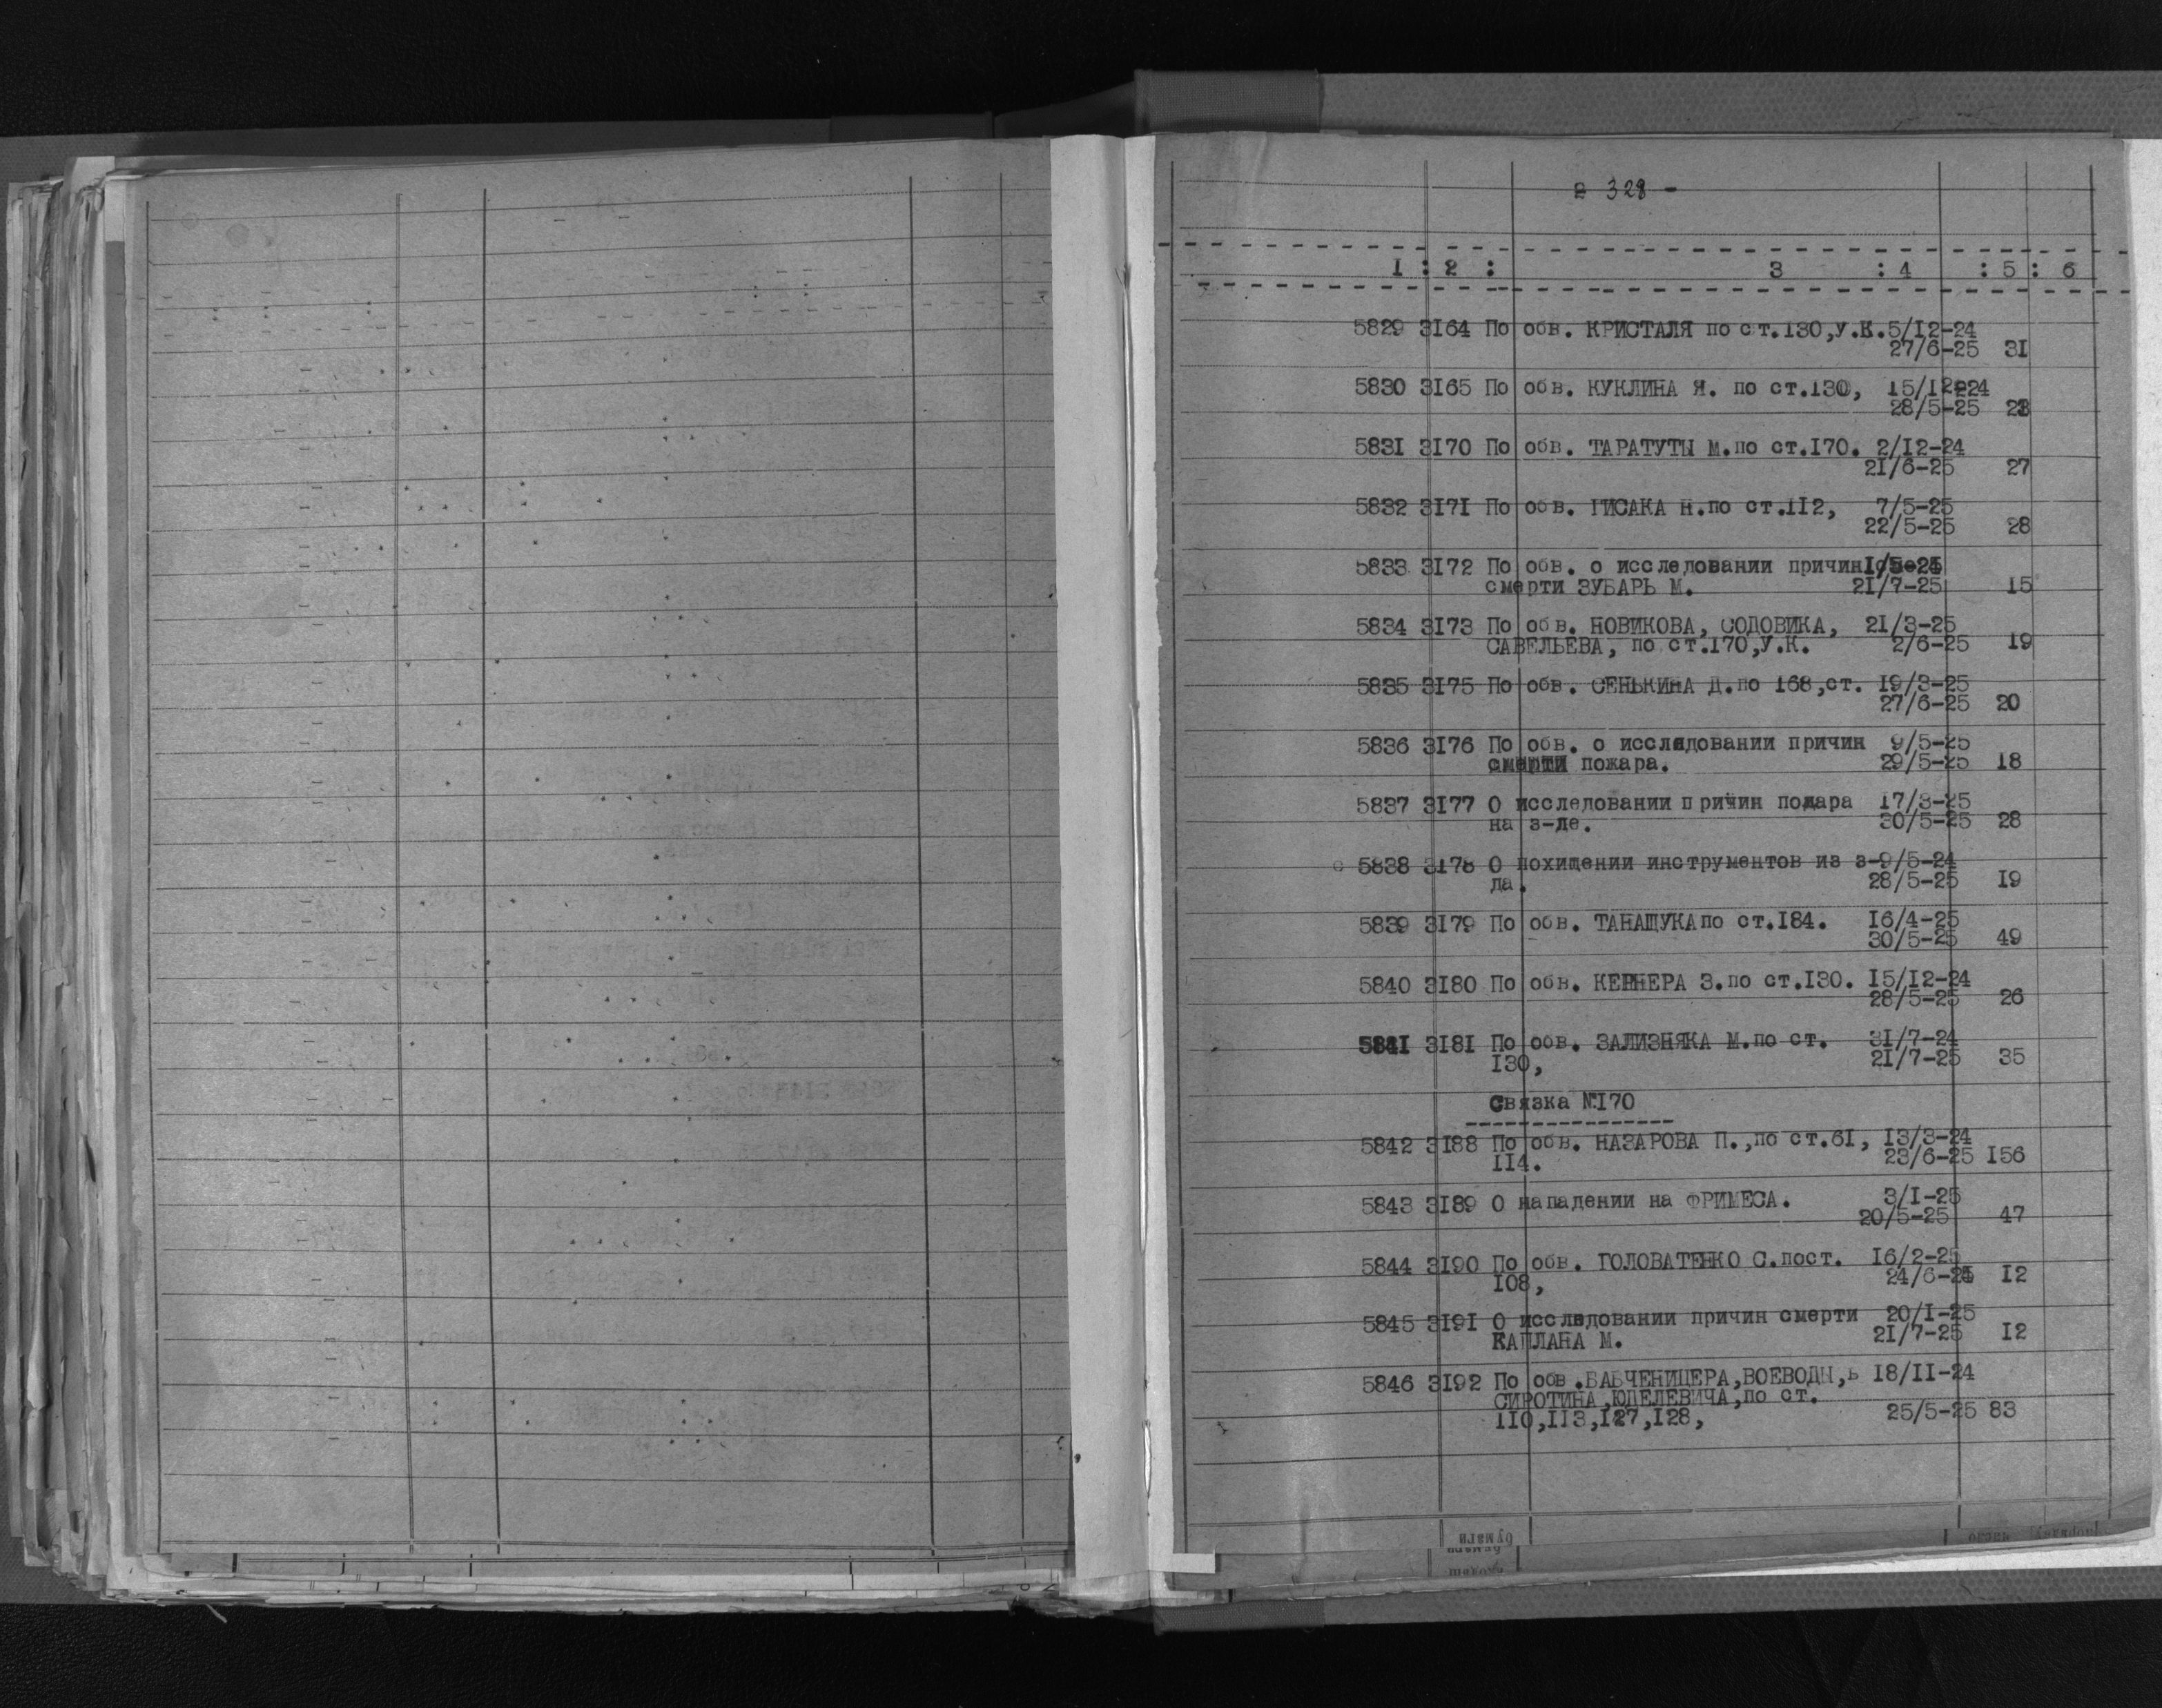 - 328 -
1 : 2 : 3 : 4 : 5 : 6
5829 3164 По обв. КРИСТАЛЯ по ст.130,У.К. 5/12-24
27/6-25 31
5830 3165 По обв. КУКЛИНА Я. по ст.130, 15/12-24
28/5-25
5831 3170 По обв. ТАРАТУТЫ М.по ст.170. 2/12-24
21/6-25 27
5832 3171 По обв. ГИСАКА Н.по ст.112, 7/5-25
22/5-25 28
5833 3172 По обв. о исследовании причин
смерти ЗУБАРЬ М. 21/7-25 15
5834 3173 По обв. НОВИКОВА, СОДОВИКА, 21/3-25
САВЕЛЬЕВА, по ст.170,У.К. 2/6-25 19
5835 3175 По обв. СЕНЬКИНА Д.по 168,ст. 19/3-25
27/6-25 20
5836 3176 По обв. о исследовании причин 9/5-25
смерти пожара. 29/5-25 18
5837 3177 О исследовании причин пожара 17/3-25
на з-де. 30/5-25 28
5838 3178 О похищении инструментов из з-9/5-24
да. 28/5-25 19
5839 3179 По обв. ТАНАЩУКА по ст.184. 16/4-25
30/5-25 49
5840 3180 По обв. КЕРНЕРА З.по ст.130. 15/12-24
28/5-25 26
5841 3181 По обв. ЗАЛИЗНЯКА М.по ст. 31/7-24
130, 21/7-25 35
Связка №170
5842 3188 По обв. НАЗАРОВА П.,по ст.61, 13/3-24
114. 23/6-25 156
5843 3189 О нападении на ФРИМЕСА. 3/1-25
20/5-25 47
5844 3190 По обв. ГОЛОВАТЕНКО С.пост. 16/2-25
108, 24/6-25 12
5845 3191 О исследовании причин смерти 20/1-25
КАПЛАНА М. 21/7-25 12
5846 3192 По обв.БАБЧЕНИЦЕРА,ВОЕВОДЫ, 18/11-24
СИРОТИНА,ЮДЕЛЕВИЧА,по ст.
110,113,127,128, 25/5-25 83
бумаги